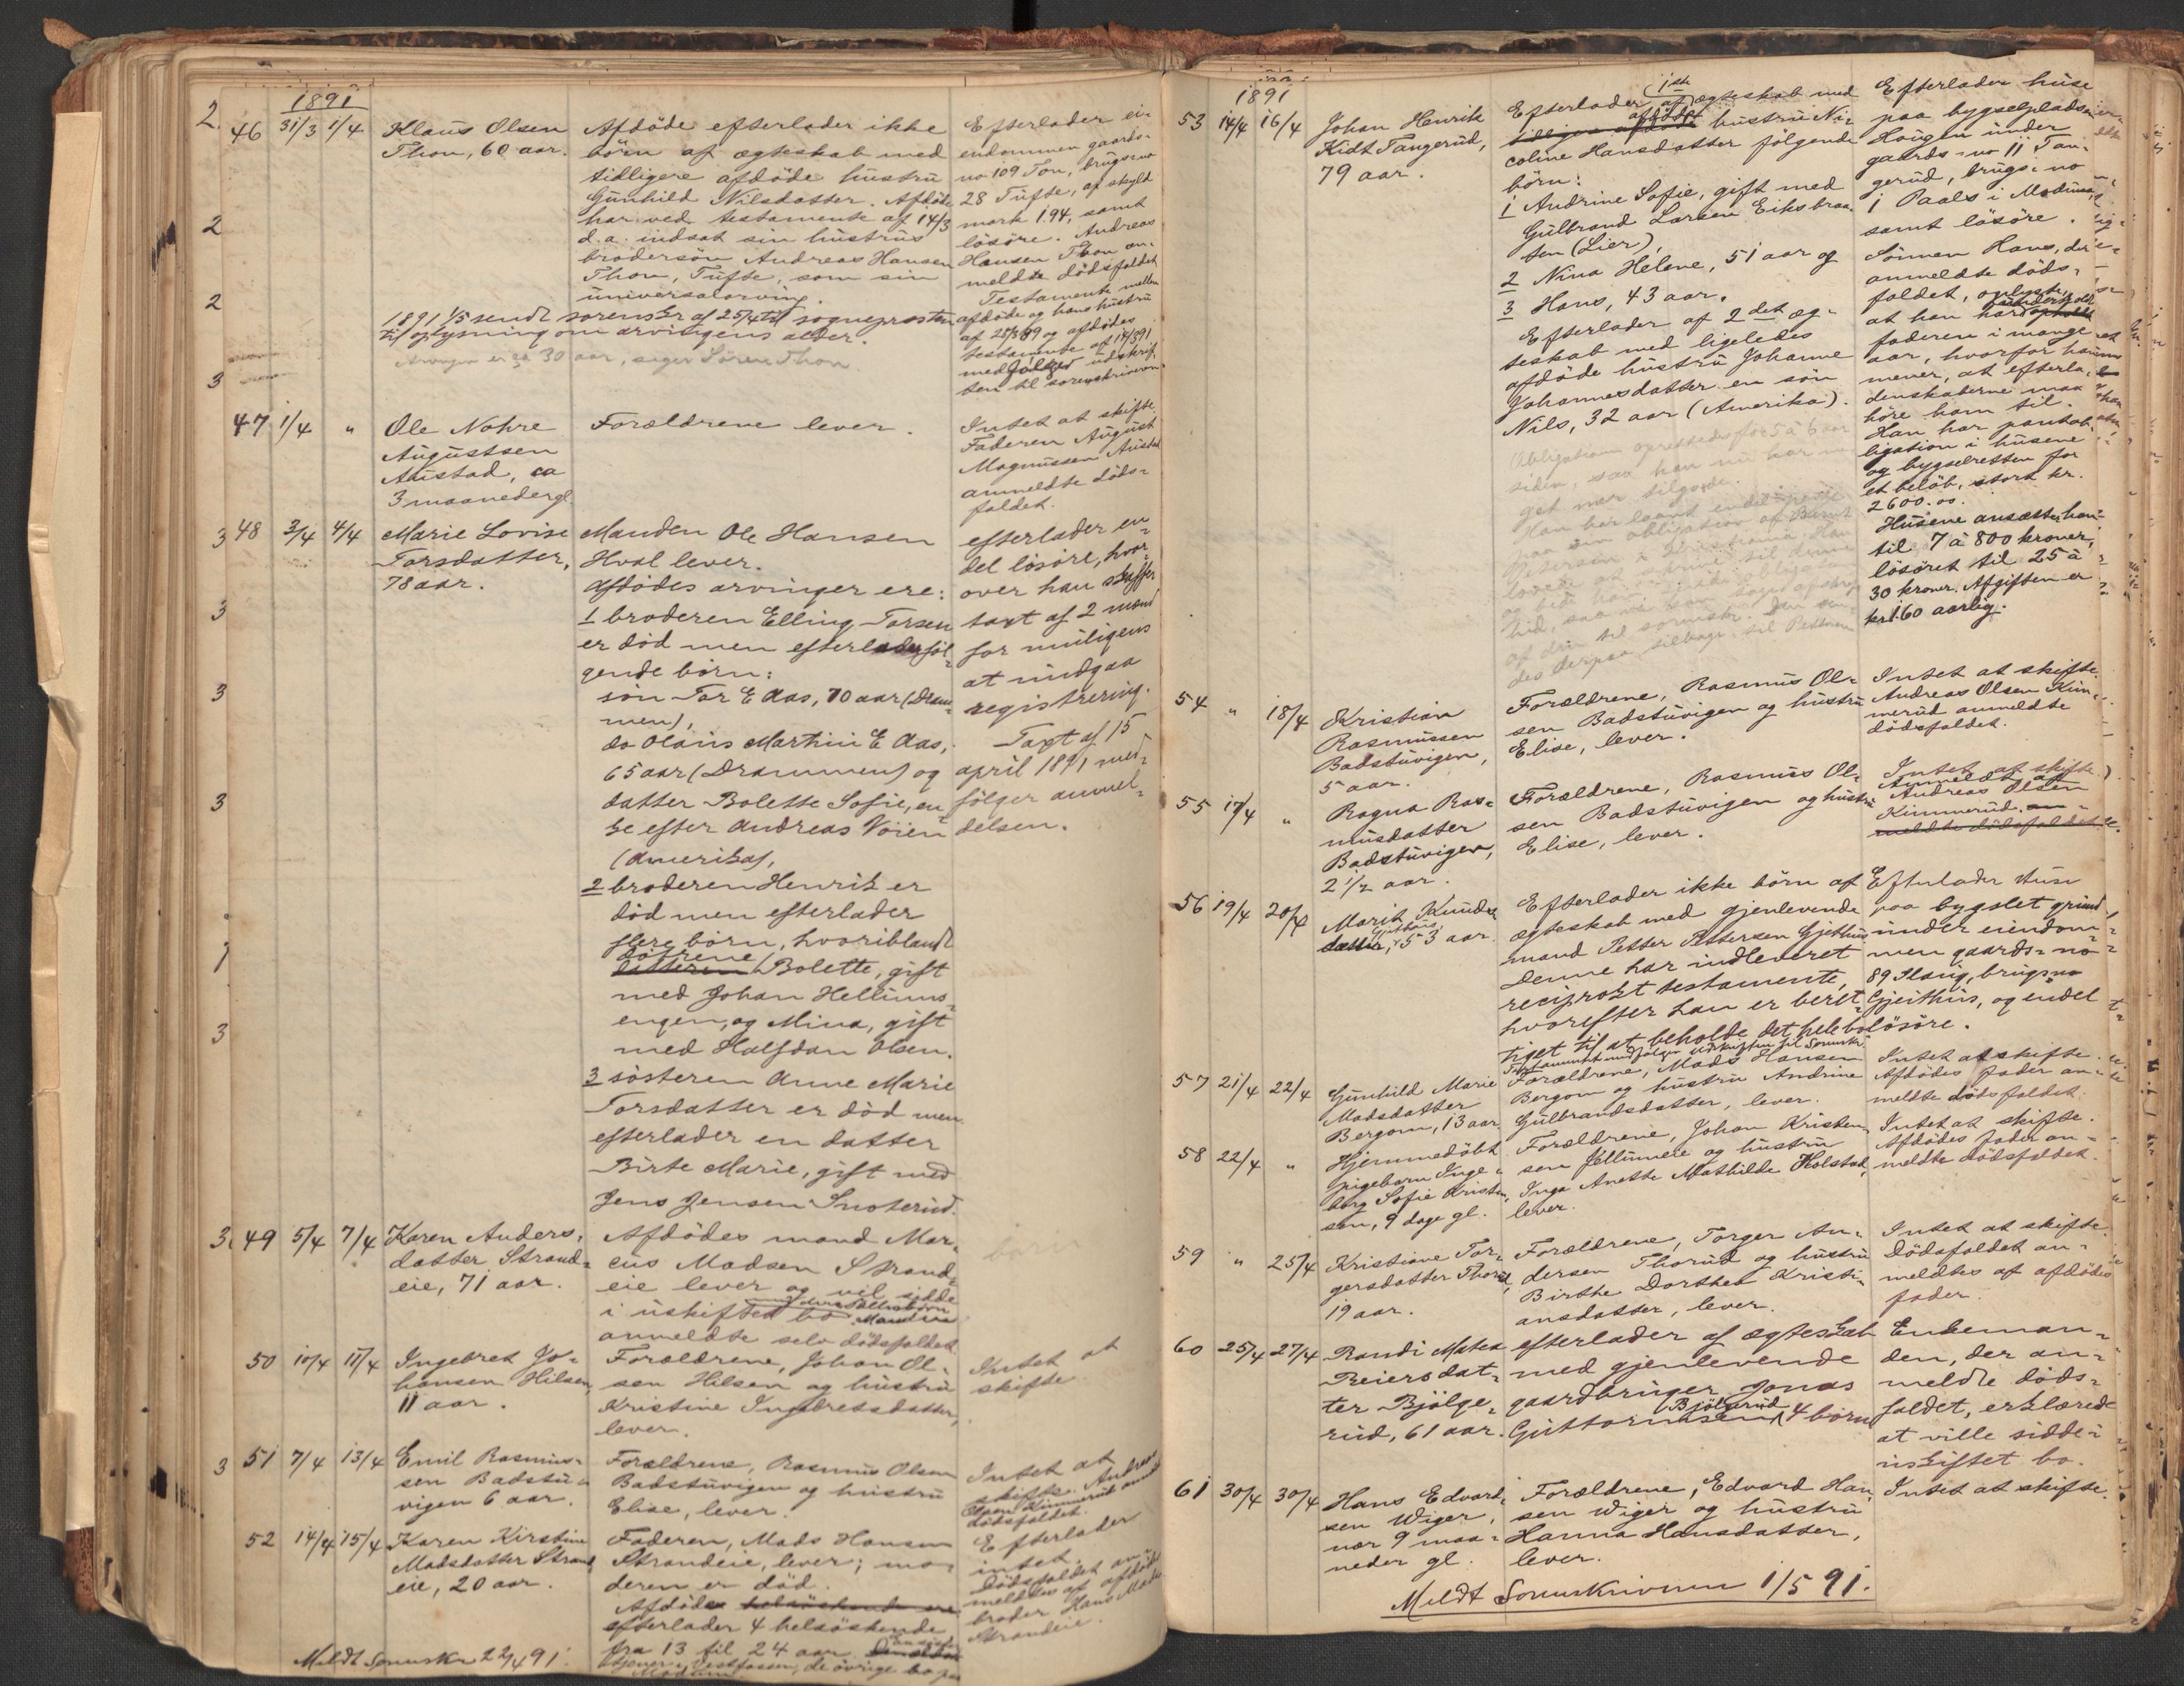 1891
46 31/3 1/4 Klaus Olsen
Thon, 60 aar.
Afdöde efterlader ikke
börn af ægteskab med
tidligere afdöde hustru
Gunhild Nilsdatter. Afdöde
har ved testamente af 14/3
d.a. indsat sin hustrus
brodersön Andreas Hansen
Thon, Tufte, som sin
universalarving.
1891 1/5 sendt sorenskr af 25/4 til sognepresten
til oplysning om arvingens alder.
Arvingen er ca 30 aar, siger Sören Thon.
Efterlader ei-
endommen gaards-
no 109 Ton, brugs-no
28 Tufte, af skyld
mark 1.94, samt
lösöre. Andreas
Hansen Thon an-
meldte dödsfaldet
Testamente mellem
afdöde og hans hustru
af 25/3 89 og afdödes
testamente af 14/3 91
medfölger udskrif-
ten til sorenskriveren
47 1/4 " Ole Nohre
Augustsen
Austad, ca
3 maaneder gl.
Forældrene lever.
Intet at skifte.
Faderen August
Magnussen Austad
anmeldte döds-
faldet.
48 3/4 4/4 Marie Lovise
Torsdatter,
78 aar.
Manden Ole Hansen
Hval lever.
Afdödes arvinger ere:
1 broderen Elling Torsen
er död men efterlader föl-
gende börn:
sön Tor E Aas, 70 aar (Dram-
men),
do Olaus Martin E Aas,
65 aar (Drammen) og
datter Bolette Sofie, en-
ke efter Andreas Voien
(Amerika),
2 broderen Henrik er
död men efterlader
flere börn, hvoriblandt
dötrene
Bolette, gift
med Johan Hellums-
engen, og Mina, gift
med Halfdan Olsen.
3 söster en Anne Marie
Torsdatter er död men
efterlader en datter
Birte Marie, gift med
Jens Jensen Snoterud.
efterlader en-
del lösöre, hvor-
over han skaffer
taxt af 2 mænd
for muligens
at undgaa
registrering.
Taxt af 15
april 1891 med-
fölger anmel-
delsen.
49 5/4 7/4 Karen Anders-
datter Strand-
eie, 71 aar.
Afdödes mand Mar-
cus Madsen Strand-
eie lever og vil sidde
i uskiftet bo
Manden
anmeldte selv dödsfaldet
50 10/4 11/4 Ingebret Jo-
hansen Hilsen,
11 aar.
Forældrene, Johan Ol-
sen Hilsen og hustru
Kristine Ingebretsdatter,
lever.
Intet at
skifte
51 7/4 13/4 Emil Rasmus-
sen Badstu-
vigen 6 aar.
Forældrene, Rasmus Olsen
Badstuvigen og hustru
Elise, lever.
Intet at
skifte. Andreas
Olsen Kimmerud anmeldte
dödsfaldet.
52 14/4 15/4 Karen Kirstine
Madsdatter Strand-
eie, 20 aar.
Faderen, Mads Hansen
Strandeie, lever; mo-
deren er död.
Afdöde helsöskende ere
efterlader 4 helsöskende
fra 13 til 24 aar
tjener i Vestfossen, de övrige bo paa
Modum.
Efterlader
intet.
Dödsfaldet an-
meldtes af afdödes
broder Hans Mads
Strandeie.
Meldt Sorenskr 22/4 91.
1891
53 14/4 16/4 Johan Henrik
Kidt Tangerud,
79 aar.
Efterlader af 1ste ægteskab med
afdöde hustru Ni-
coline Hansdatter fölgende
börn:
1 Andrine Sofie, gift med
Gulbrand Larsen Eiksbraa-
ten (Lier),
2 Nina Helene, 51 aar og
3 Hans, 43 aar.
Efterlader af 2det æg-
teskab med ligeledes
afdöde hustru Johanne
Johannesdatter en sön
Nils, 32 aar (Amerika).
Obligationen oprettedes for 5 à 6 aar
siden, saa han nu har
get mer tilgode.
Efterlader huse
paa bygselpladsen
Haugen under
gaards-no 11 Tan-
gerud, brugs-no
1 Paals i Modum,
samt lösöre.
Sönnen Hans, der
anmeldte döds-
faldet, oplyste,
at han har underholdt
faderen i mange
aar, hvorfor han
mener, at efterla-
denskaberne maa
höre ham til.
Han har pantob-
ligation i husene
og bygselretten for
et belöb, stort kr.
2600.00.
Husene ansætter han
til 7 à 800 kroner,
lösöret til 25 à
30 kroner. Afgiften er
kr 1.60 aarlig.
54 " 18/4 Kristian
Rasmussen
Badstuvigen,
5 aar.
Forældrene, Rasmus Ol-
sen Badstuvigen og hustru
Elise, lever.
Intet at skifte.
Andreas Olsen Kim-
merud anmeldte
dödsfaldet.
55 17/4 " Ragna Ras-
musdatter
Badstuvigen,
2 1/2 aar.
Forældrene, Rasmus Ol-
sen Badstuvigen og hustru
Elise, lever.
Intet at skifte.
Anmeldt af
Andreas Olsen
Kimmerud an-
meldte dödsfaldet
56 19/4 20/4 Marit Knuds-
datter, Gjethus, 53 aar.
Efterlader ikke börn af
ægteskab med gjenlevende
mand Petter Pettersen Gjethus
Denne har indleveret
reciprokt testamente,
hvorefter han er beret-
tiget til at beholde det hele bo
Testamentet medfölger udskriften til Sorenskr.
Efterlader Huse
paa bygslet grund
under eiendom-
men gaards-no
89 Slaug, brugsno
Gjeithus, og endel
lösöre.
57 21/4 22/4 Gunhild Marie
Madsdatter
Bergom, 13 aar
Forældrene, Mads Hansen
Bergom og hustru Andrine
Gulbrandsdatter, lever.
Intet at skifte.
Afdödes fader an-
meldte dödsfaldet.
58 22/4 " Hjemmedöbt
pigebarn Inge-
borg Sofie Kristen-
sen, 9 dage gl.
Forældrene, Johan Kristen-
sen Jellumeie og hustru
Inga Anette Mathilde Holstad,
lever.
Intet at skifte.
Afdödes fader an-
meldte dödsfaldet.
59 " 25/4 Kristiane Tor-
gersdatter Thorud,
19 aar.
Forældrene, Torger An-
dersen Thorud og hustru
Birthe Dorthea Kristi-
ansdatter, lever.
Intet at skifte.
Dödsfaldet an-
meldtes af afdödes
fader.
60 25/4 27/4 Randi Matea
Reiersdat-
ter Bjölge-
rud, 61 aar.
efterlader af ægteskab
med gjenlevende
gaardbruger Jonas
Guttormsen Bjölgerud 4 börn
Enkeman-
den, der an-
meldte döds-
faldet, erklærede
at ville sidde i
uskiftet bo.
61 30/4 30/4 Hans Edvard-
sen Wiger,
nær 9 maa-
neder gl.
Forældrene, Edvard Han-
sen Wiger og hustru
Hanna Hansdatter,
lever.
Intet at skifte.
Meldt Sorenskriveren 1/5 91.